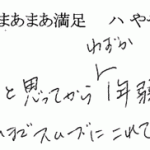 まあまあ満足 ハ や
わずか
と思ってから1年弱
スムーズにこれて